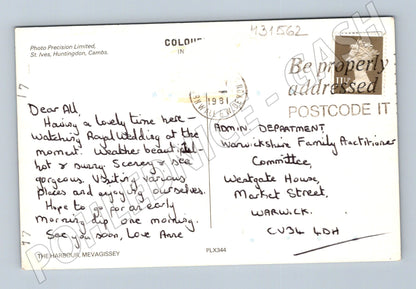 431562
Photo Precision Limited,
St. Ives, Huntingdon, Cambs.
COLOU
IN
1981
Be properly
addressed
POSTCODE IT
Dear All,
Having a lovely time here -
watching Royal Wedding at the
moment. Weather beautiful -
hot & sunny. Scenery & sea
gorgeous. Visiting various
places and enjoying ourselves.
Hope to go for an early
morning dip one morning.
See you soon, Love Anne
ADMIN. DEPARTMENT,
Warwickshire Family Practitioner
Committee,
Westgate House,
Market Street,
WARWICK.
CV34 4DH
THE HARBOUR, MEVAGISSEY
PLX344